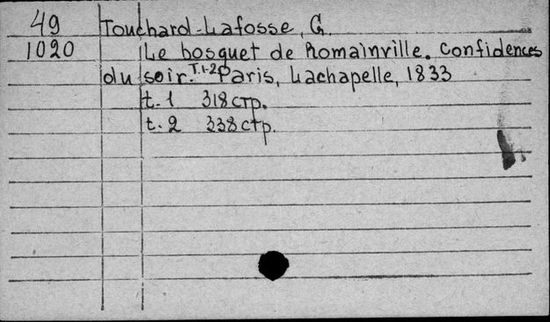 49 Touchard-Lafosse, G.
1020 Le bosquet de Romainville. Confidences
du soir. T.1-2 Paris, Lachapelle, 1833
t. 1 318 стр.
t. 2 338 стр.